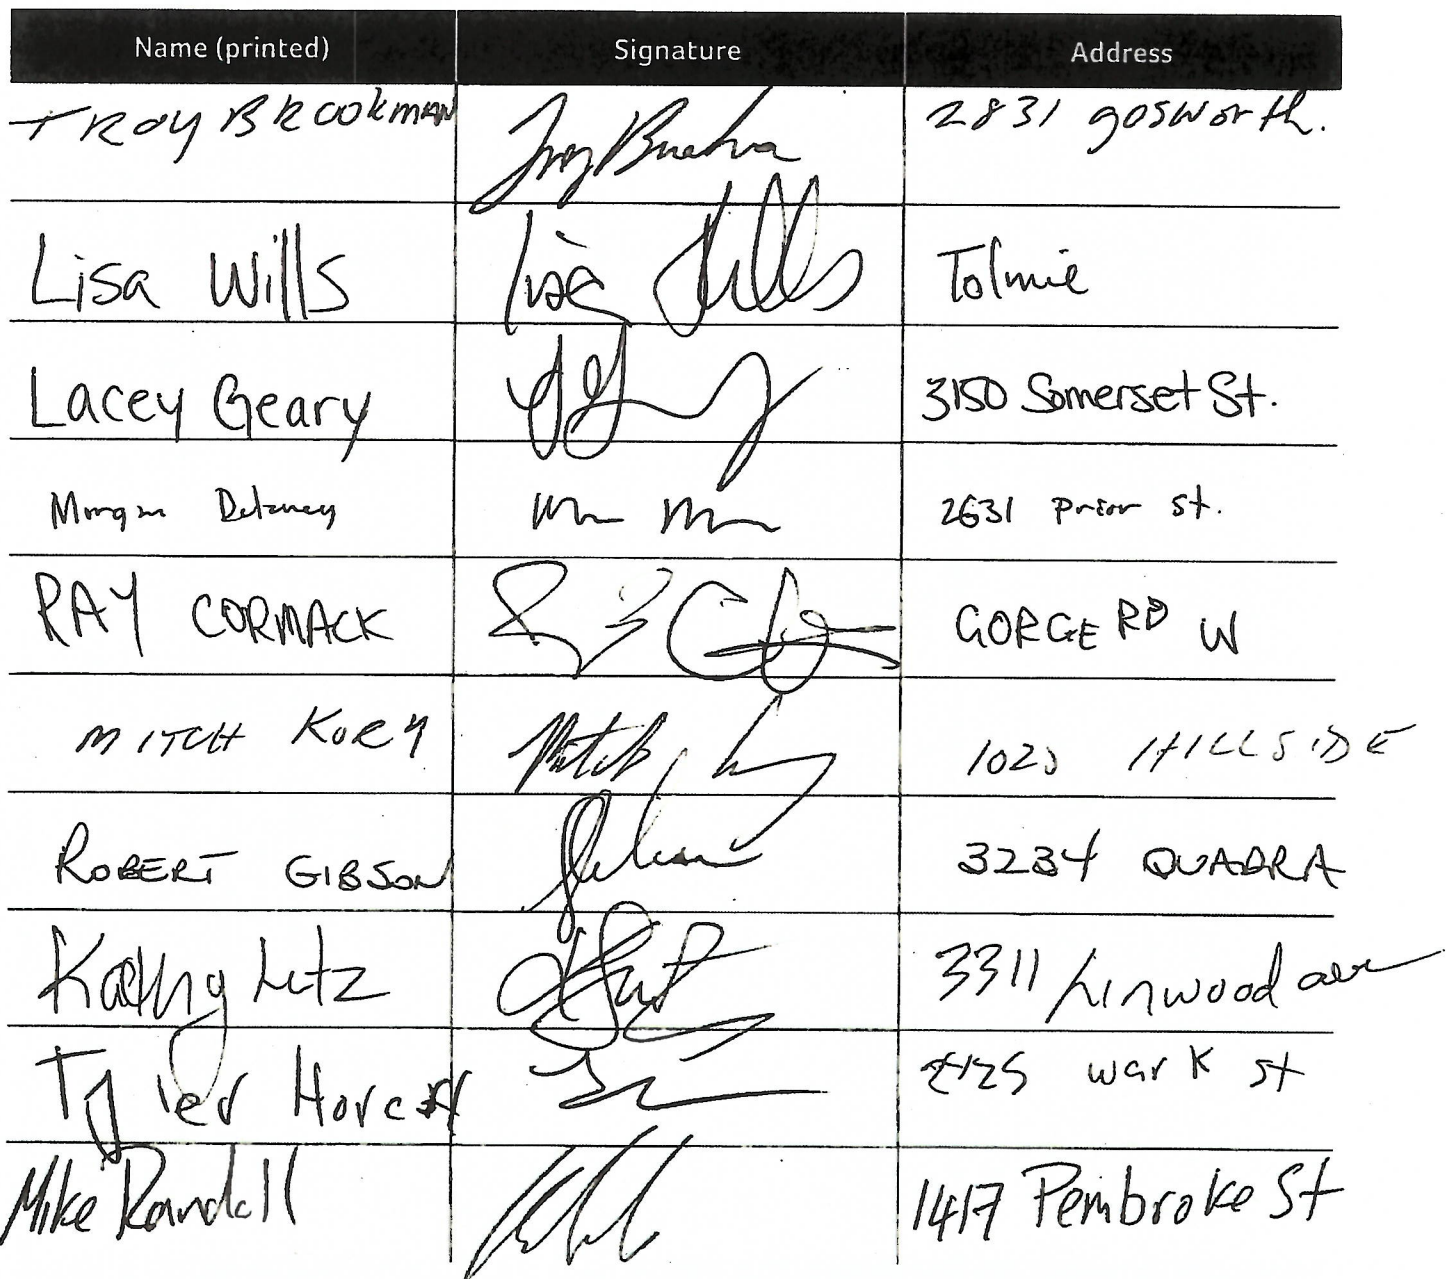 Name (printed) Signature Address
TROY BROOKMAN Troy 2831 gosworth.
Lisa Wills Lisa Wills Tolmie
Lacey Geary 3150 Somerset St.
Morgan Delaney 2631 Prior St.
RAY CORMACK GORGE RD W
MITCH KORY Mitch 1020 HILLSIDE
ROBERT GIBSON 3234 QUADRA
Kathy Letz 3311 Linwood ave
Tyler wark st
Mike Randall 1417 Pembroke St